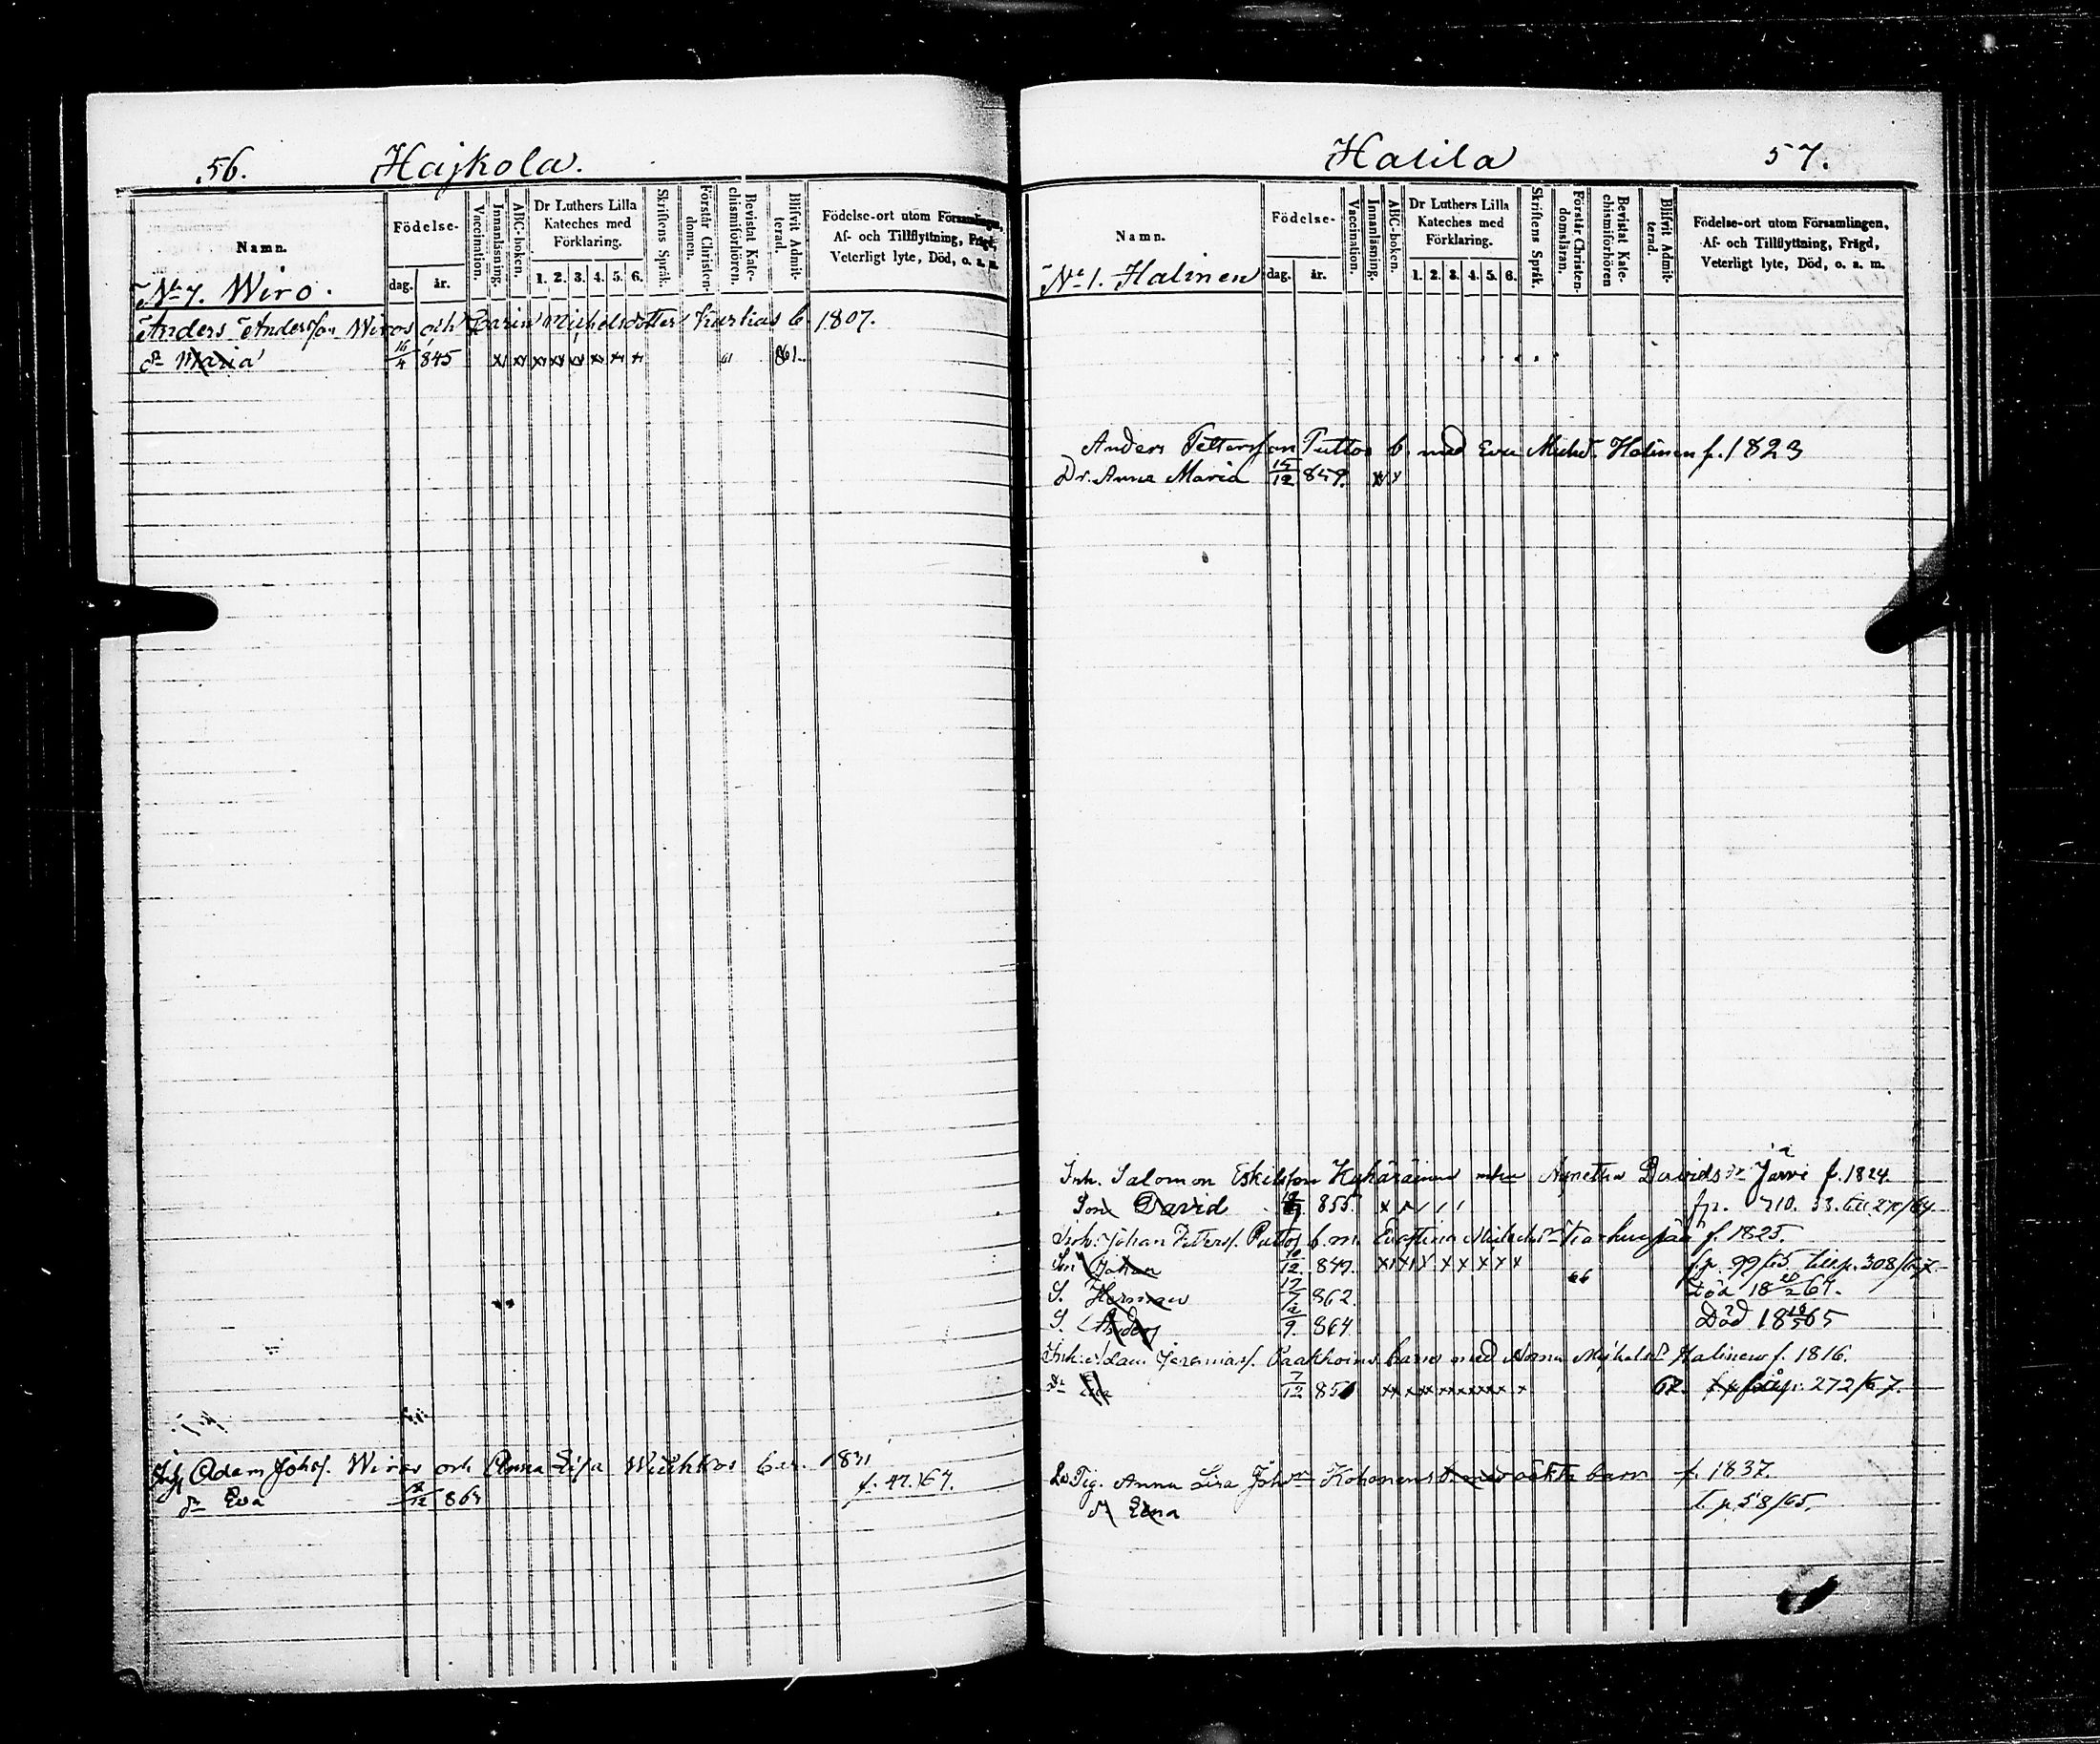 56. Hajkola.
Namn. Födelse- dag. år. Vaccination. Innanläsning. ABC-boken. Dr Luthers Lilla Kateches med Förklaring. 1. 2. 3. 4. 5. 6. Skriftens Språk. Förstår Christendomen. Bevistat Katechismiförhören. Blifvit Admitterad. Födelse-ort utom Församlingen, Af- och Tillflyttning, Frägd, Veterligt lyte, Död, o. a. m.
No 7. Wiro.
Anders Andersson Wiros och Carin Michelsdotter Kurkias b. 1807.
dr Maria 16/4 845 61 861.
Adam Johs. Wiros och Anna Lisa bar. 1831
dr Eva f. 42./67.
Halila 57.
Namn. Födelse- dag. år. Vaccination. Innanläsning. ABC-boken. Dr Luthers Lilla Kateches med Förklaring. 1. 2. 3. 4. 5. 6. Skriftens Språk. Förstår Christendomsläran. Bevistat Katechismiförhören Blifvit Admitterad. Födelse-ort utom Församlingen, Af- och Tillflyttning, Frägd, Veterligt lyte, Död, o. a. m.
No 1. Halinen
Anders Pettersson Puttos b. med Eva Michd. Halinen f. 1823
Dr. Anna Maria 15/12 859. x x
Inh. Salomon Eskilsson Agnetha Davidsdr Järvi f. 1824.
Son David 855.
Inh. Johan Petters. Puttos b. m. f. 1825.
Son Johan 10/12 849. x x x x x x x x 66 f.p. 99/65. till p. 308/67.
S. Herman 17/7 862. död 18 20/2 64.
S. Anders 12/9. 864 Död 1865
Jeremias. Paakkoins barn med Anna Mickelsd Halinen f. 1816.
dr 7/12 67. 272/67.
Lö Pig. Anna Lisa Johdr Kohonens oäkta barn f. 1837.
dr t. p. 58/65.